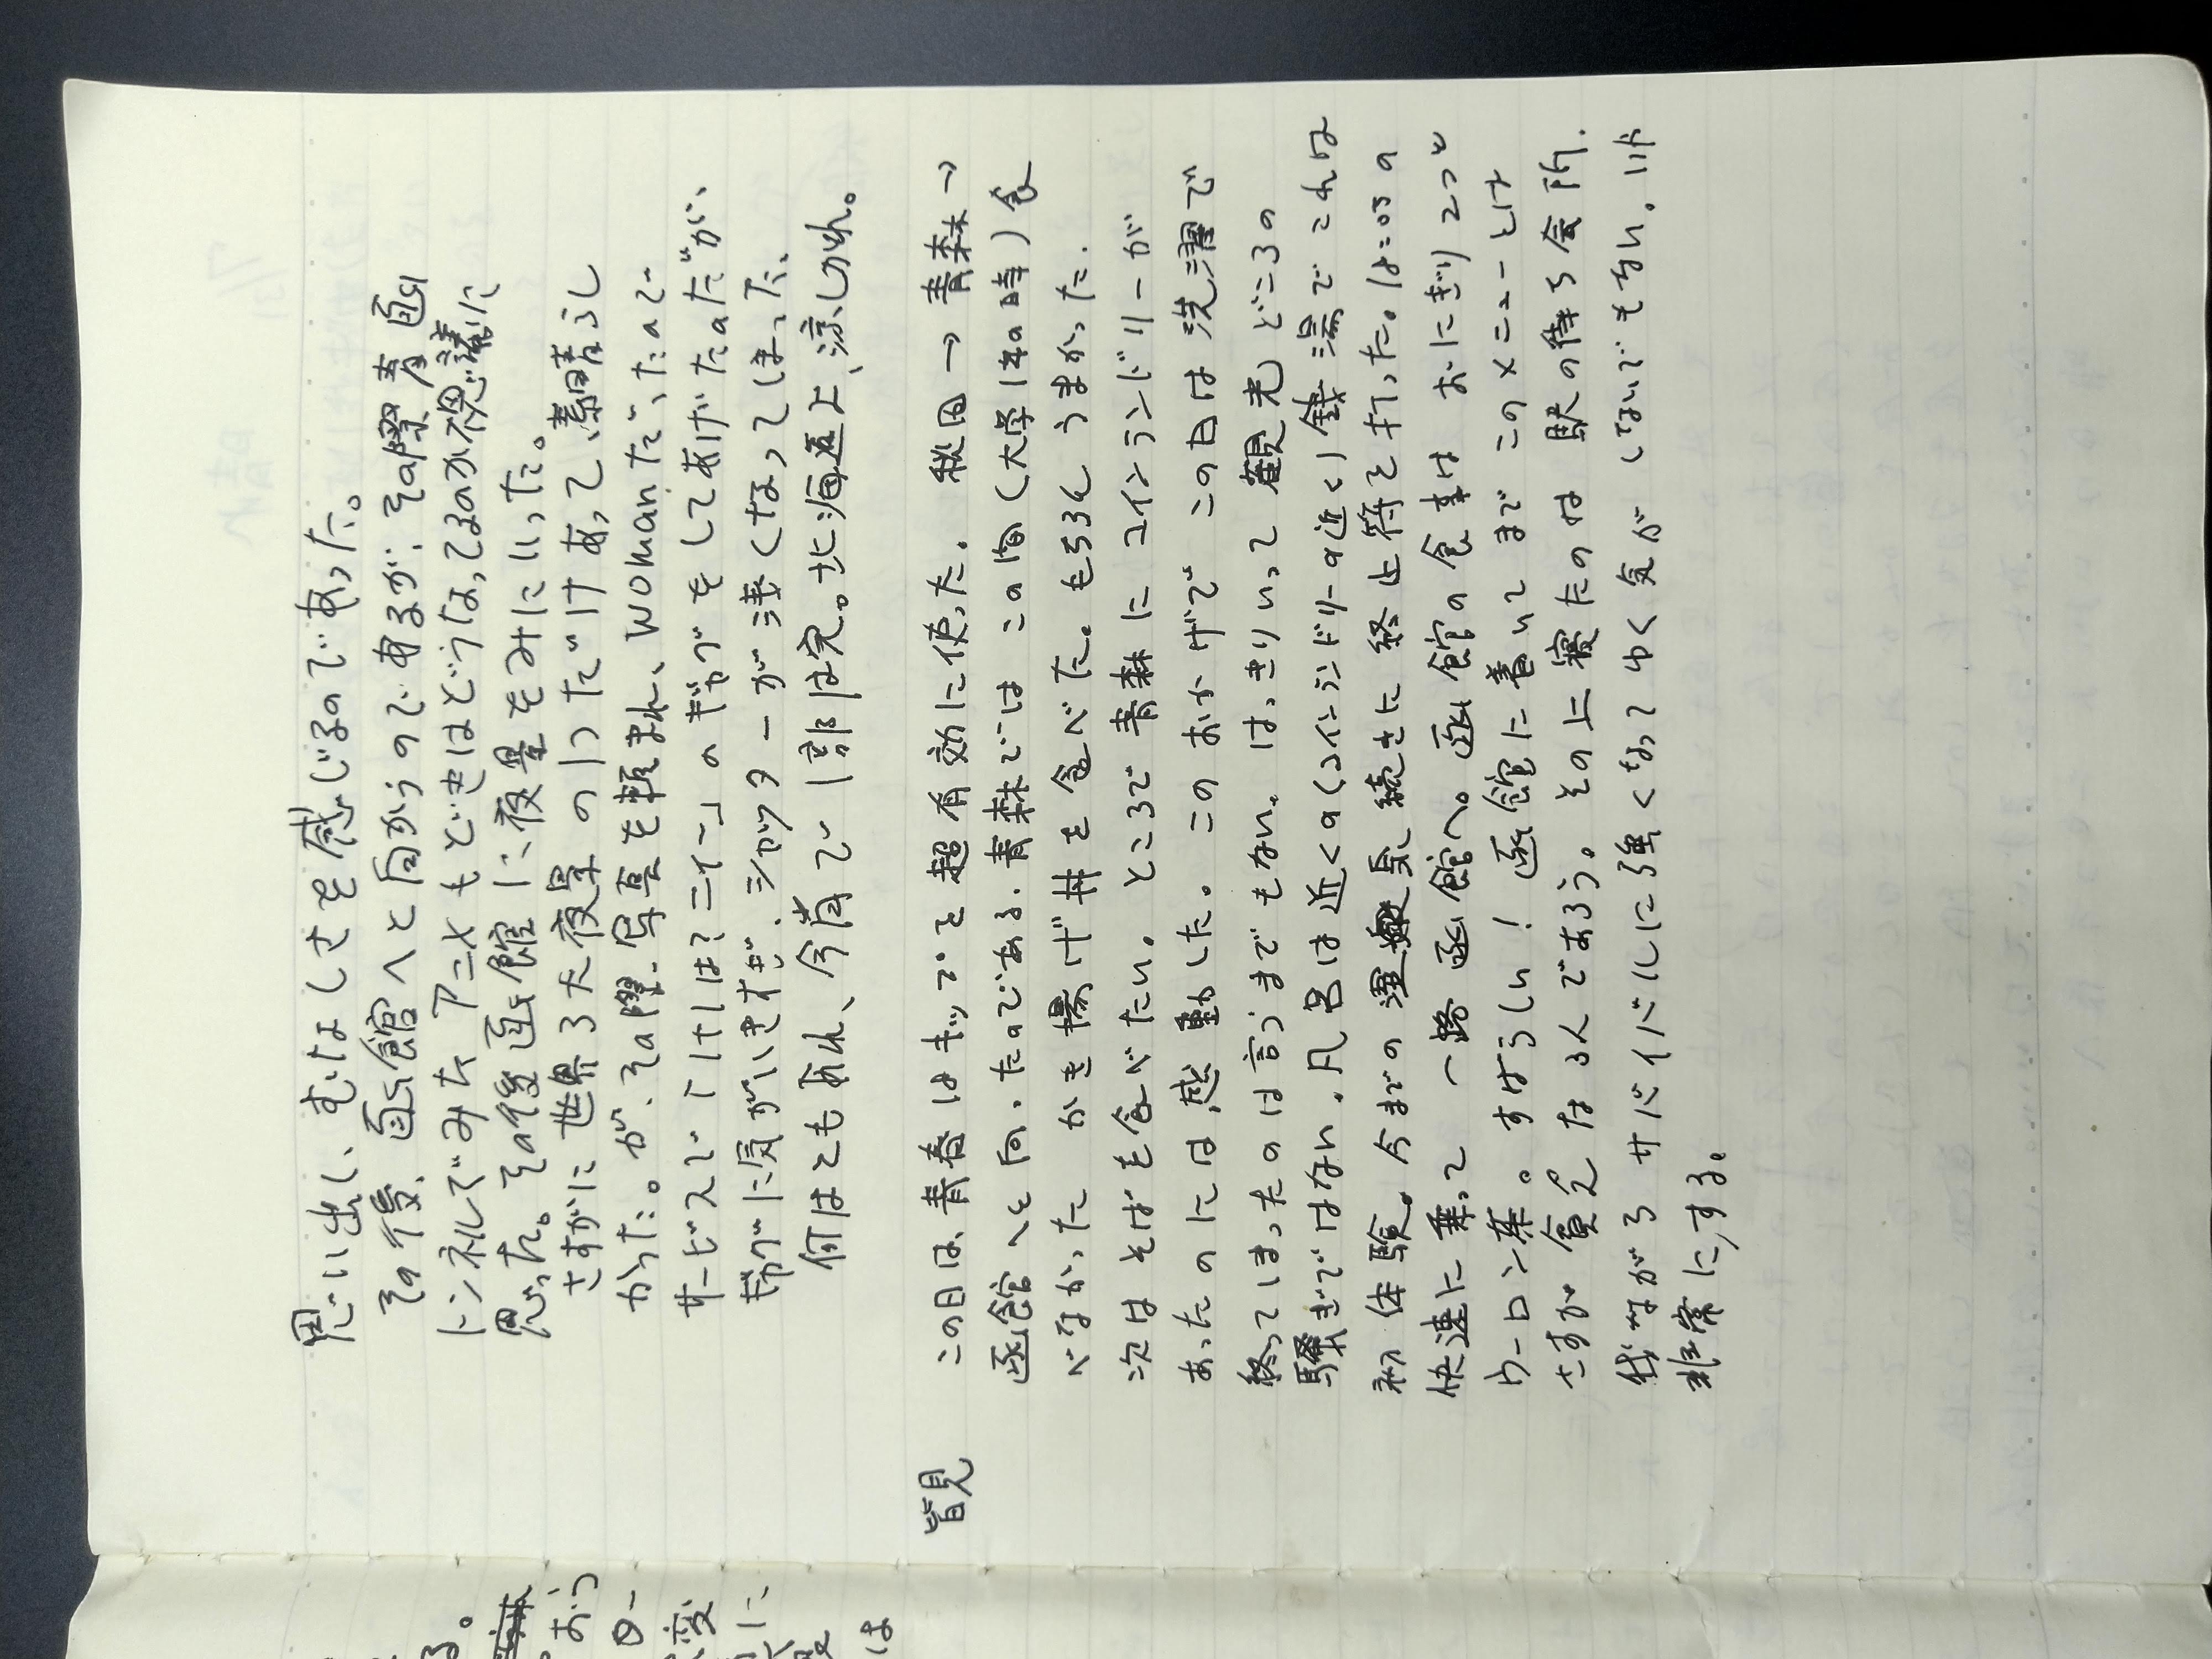 思い出し、むなしさを感じるのであった。
その後、函館へと向かうのであるが、その際、青函
トンネルでみたアニメもどきはどうなってるのか不思議に
思った。その後函館に夜景をみにいった。
さすがに世界3大夜景の1つだけあって、素晴らし
かった。が、その際、写真を頼まれ、womanだったので
サービスで「1+1は?ニィー」のギャグをしてあげたのだが、
ギャグに気がいきすぎ、シャッターが浅くなってしまった。
何はともあれ、今宵で1部は完。北海道よ、涼しかれ。
皆見
この日は、青春18キップを超有効に使った。秋田→青森→
函館へと向ったのである。青森ではこの間(大学1年の時)食
べなかったかき揚げ丼を食べた。もちろんうまかった。
次はそばも食べたい。ところで青森にコインランドリーが
あったのには感動した。このおかげでこの日は洗濯で
終ってしまったのは言うまでもない。はっきりいって観光どころの
騒ぎではない。風呂は近くの(コインランドリーの近く)銭湯でこれは
初体験。今までの運 臭続きに終止符を打った。18:03の
快速に乗って一路函館へ。函館の食事はおにぎり2つと
ウーロン茶。すばらしい!函館に着いてまでこのメニューとは
さすが貧乏なる人であろう。その上寝たのは駅の待ち合所。
我ながらサバイバルに強くなってゆく気がしないでもない。いや
非常にする。
おう
ロー
変
に
は